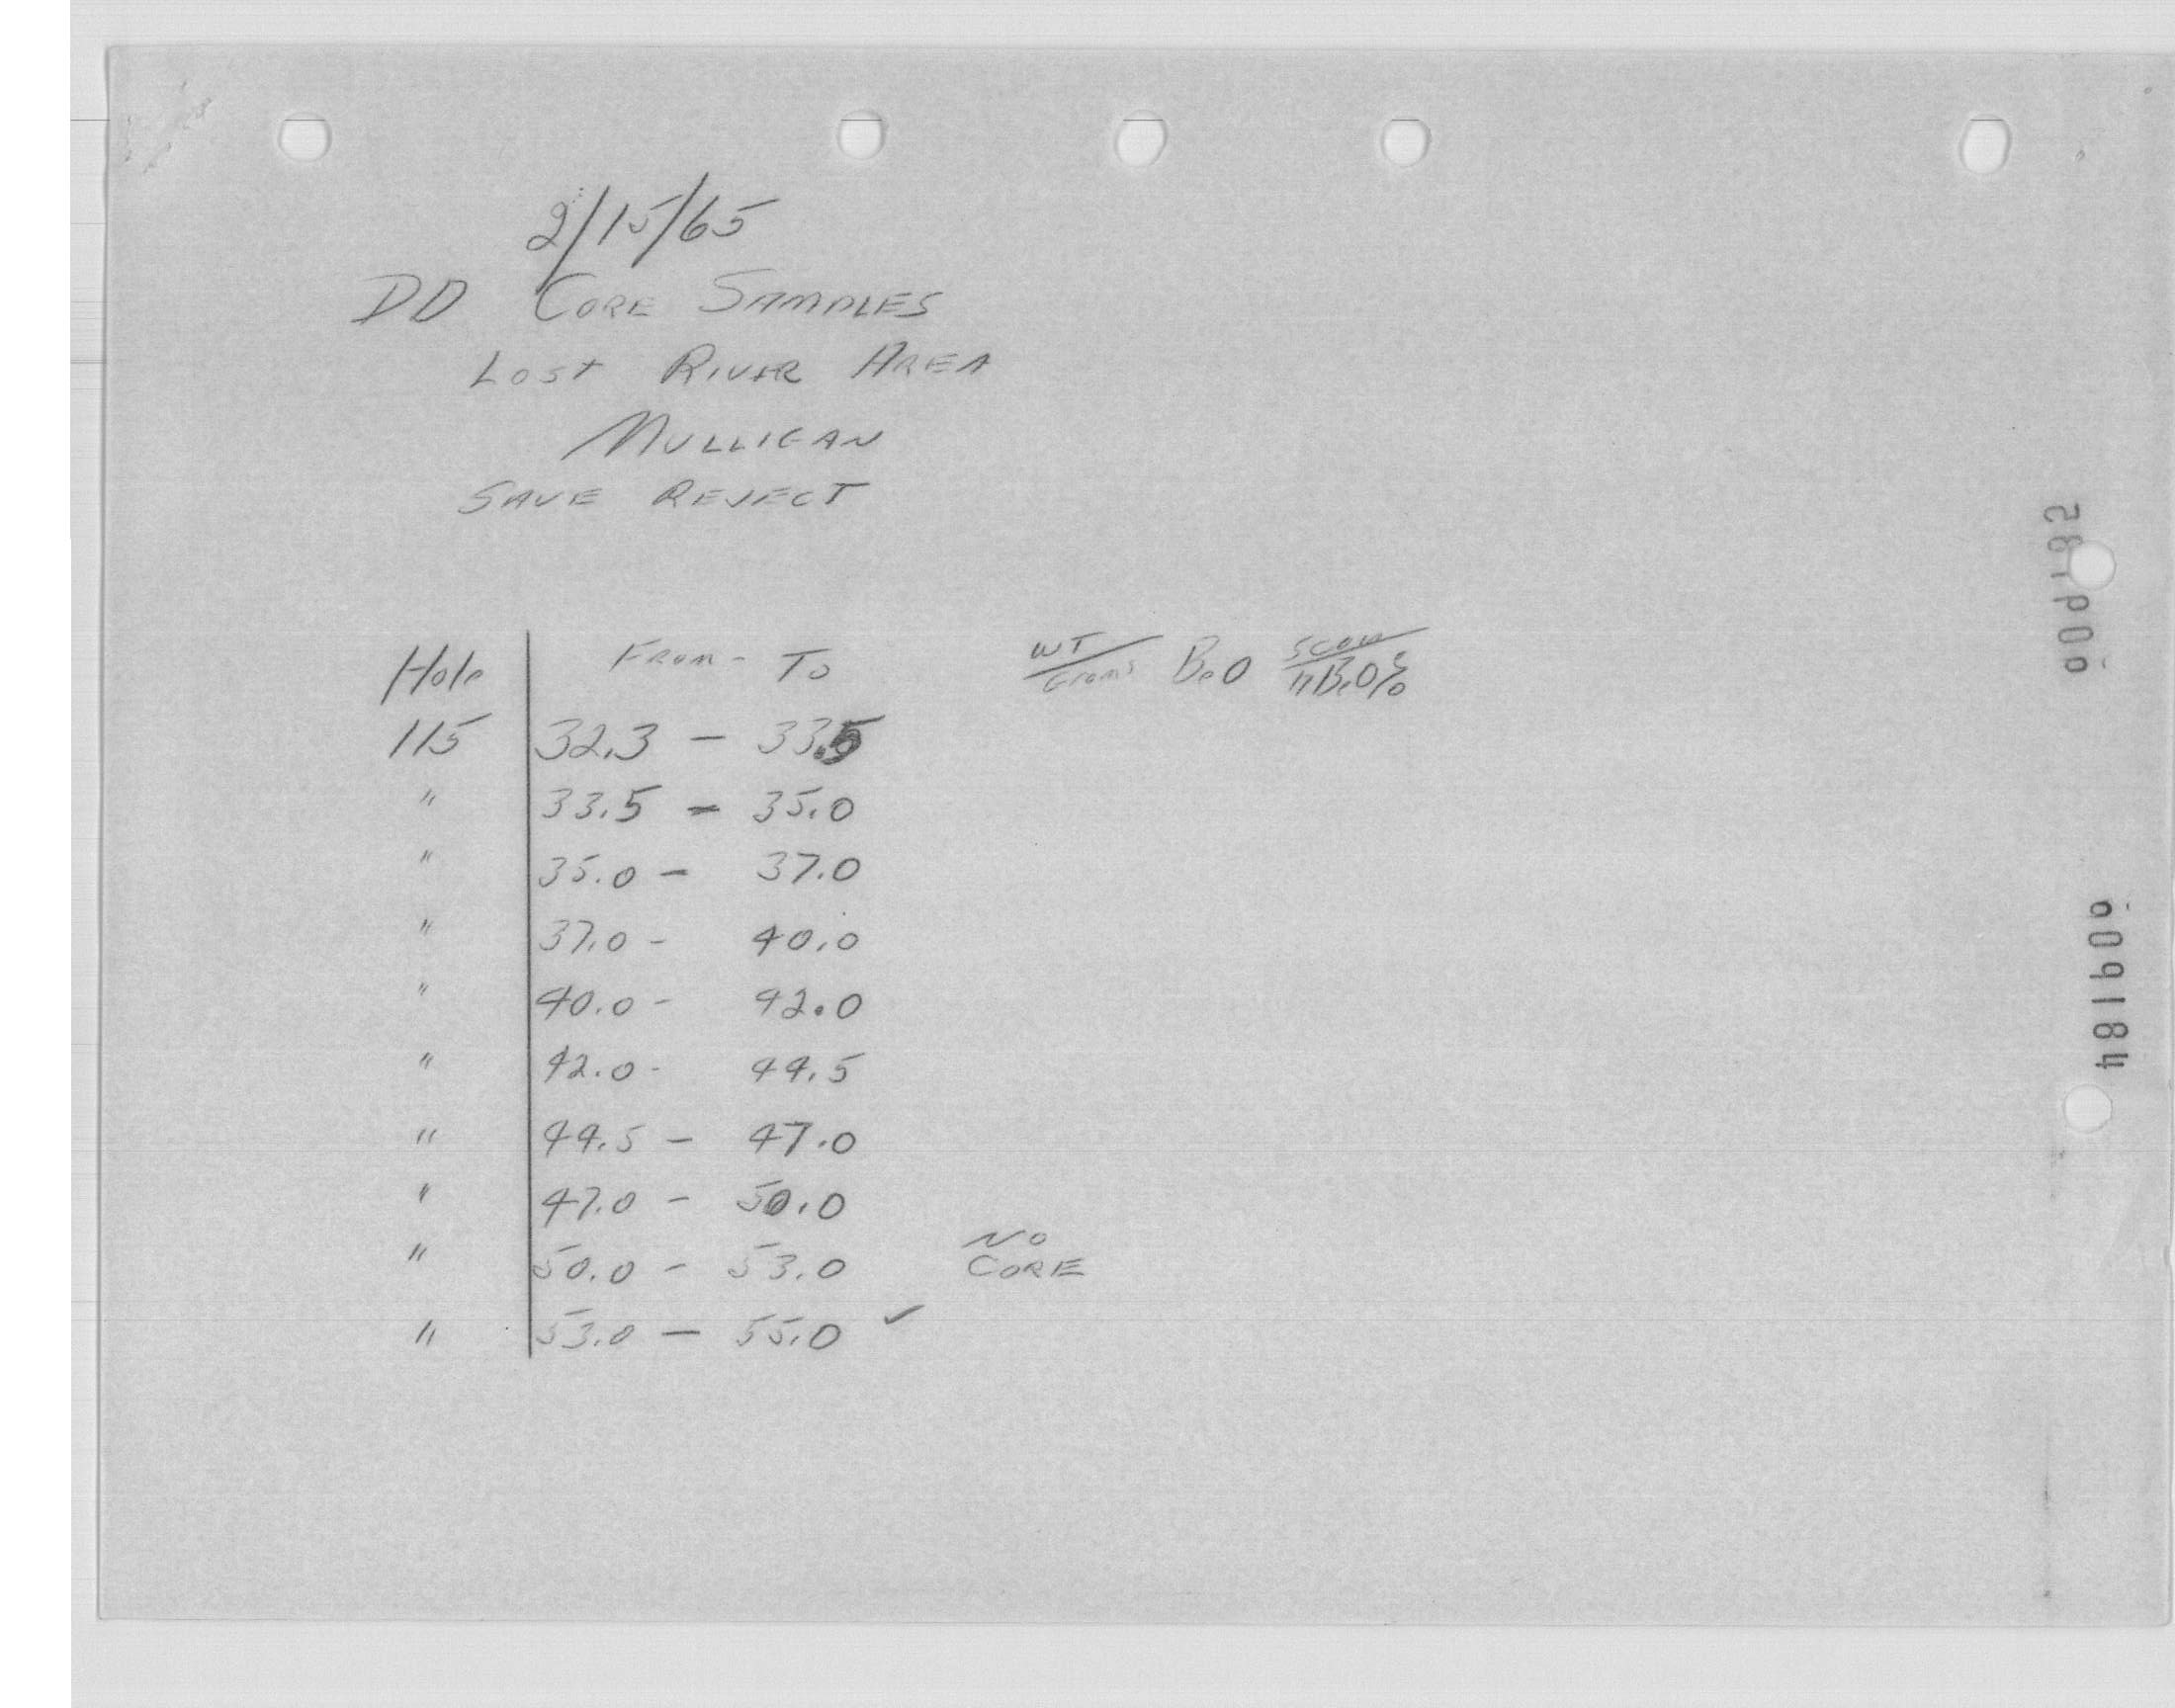 2/15/65
DD CORE SAMPLES
LOST RIVER AREA
MULLIGAN
SAVE REJECT
Hole FROM - TO WT/Grams BeO BeO%
115 32.3 - 33.5
" 33.5 - 35.0
" 35.0 - 37.0
" 37.0 - 40.0
" 40.0 - 42.0
" 42.0 - 44.5
" 44.5 - 47.0
" 47.0 - 50.0
" 50.0 - 53.0 NO CORE
" 53.0 - 55.0 ✓